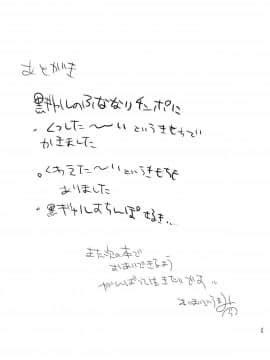 あとがき
黒ギャルのふたなりチンポに
・くっした〜〜い というきもちで
かきました
。くわえた〜い というきもちも
ありました
・黒ギャル
また次の本で
おあいできるよう
がんばってはきたいです